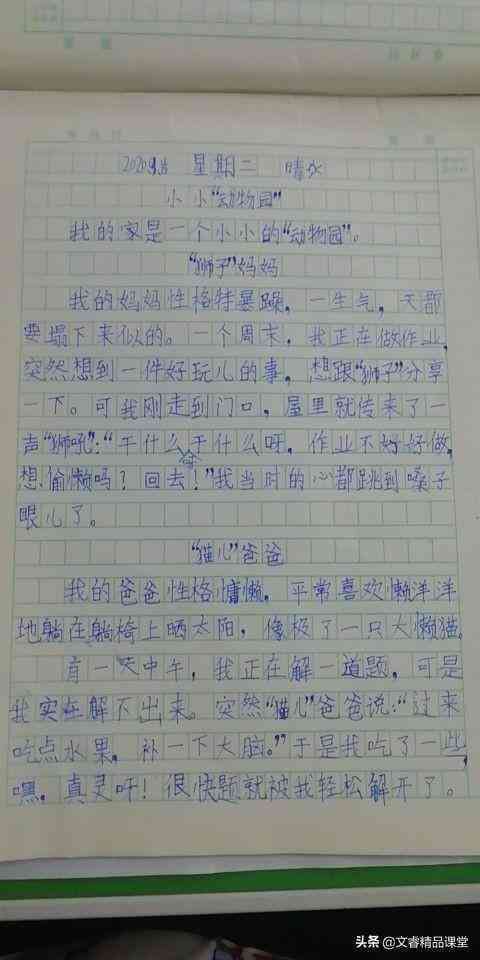 2020.9. 星期二 晴
小小“动物园”
我的家是一个小小的“动物园”。
“狮子”妈妈
我的妈妈性格特暴躁，一生气，天都
要塌下来似的。一个周末，我正在做作业，
突然想到一件好玩儿的事，想跟“狮子”分享
一下。可我刚走到门口，屋里就传来了一
声“狮吼”：“干什么干什么呀，作业不好好做，
想偷懒吗？回去！”我当时的心都跳到嗓子
眼儿了。
“猫儿”爸爸
我的爸爸性格慵懒，平常喜欢懒洋洋
地躺在躺椅上晒太阳，像极了一只大懒猫。
有一天中午，我正在解一道题，可是
我实在解不出来。突然“猫儿”爸爸说：“过来
吃点水果，补一下大脑。”于是我吃了一些，
嘿，真灵呀！很快题就被我轻松解开了。
头条@文睿精品课堂